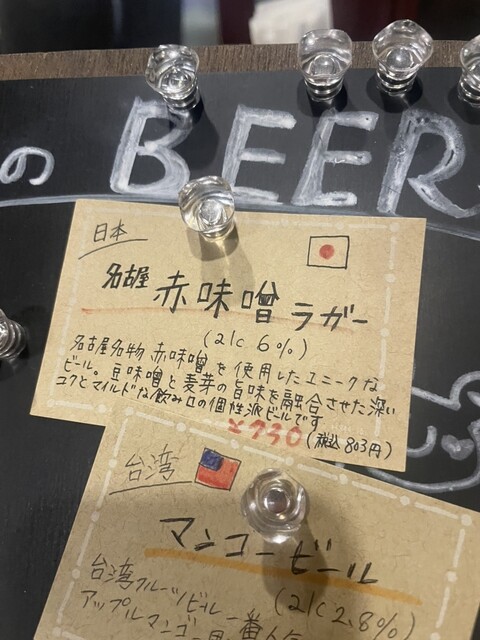 の BEER
日本
名古屋 赤味噌 ラガー
(alc 6%)
名古屋名物 赤味噌を使用したユニークな
ビール。豆味噌と麦芽の旨味を融合させた深い
コクとマイルドな飲み口の個性派ビールです
¥730 (税込803円)
台湾
マンゴービール
(alc 2.8%)
台湾フルーツビール 一番
アップルマンゴー